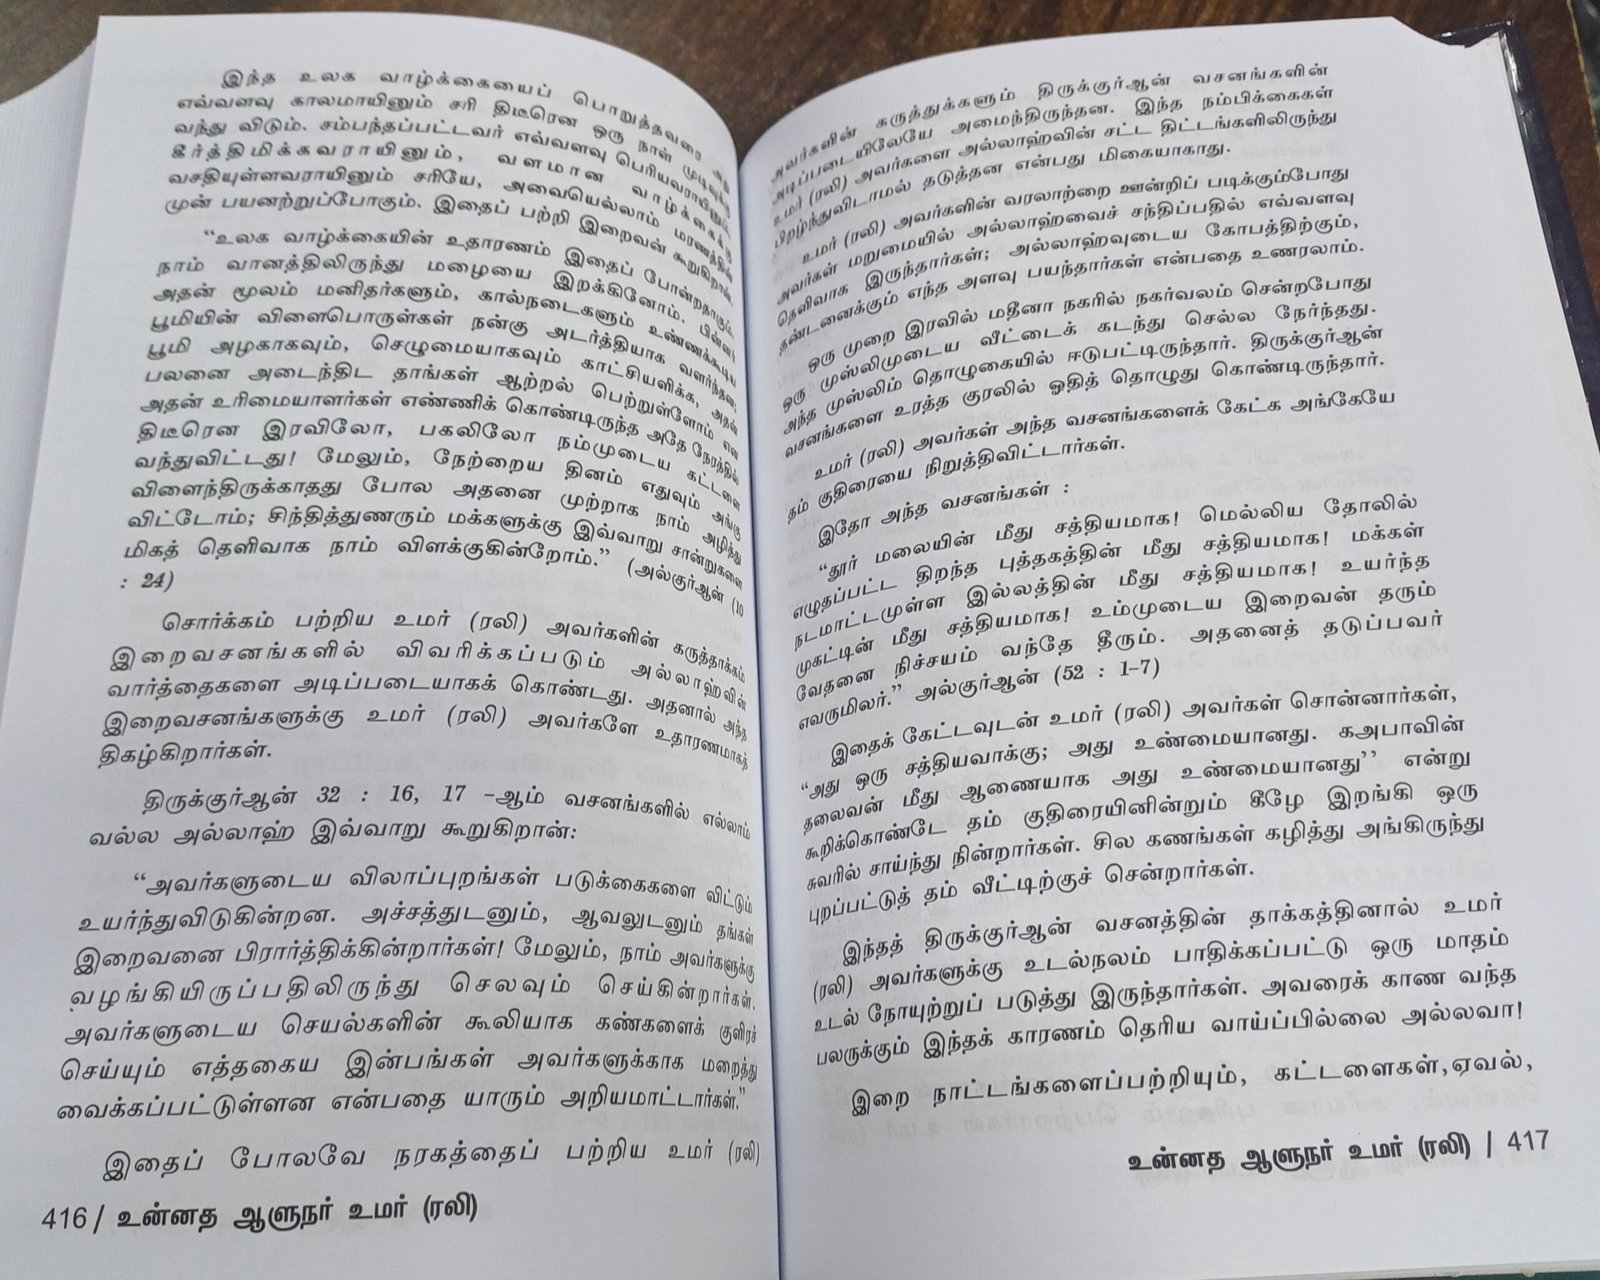 இந்த உலக வாழ்க்கையைப் பொறுத்தவரை அது
எவ்வளவு காலமாயினும் சரி திடீரென ஒரு நாள் முடிவுக்கு
வந்து விடும். சம்பந்தப்பட்டவர் எவ்வளவு பெரியவராயினும்,
கீர்த்திமிக்கவராயினும், வளமான வாழ்க்கைக்கு
வசதியுள்ளவராயினும் சரியே, அவையெல்லாம் மரணத்தின்
முன் பயனற்றுப்போகும். இதைப் பற்றி இறைவன் கூறுகிறான்.
“உலக வாழ்க்கையின் உதாரணம் இதைப் போன்றதாகும்.
நாம் வானத்திலிருந்து மழையை இறக்கினோம். பின்னர்
அதன் மூலம் மனிதர்களும், கால்நடைகளும் உண்ணக்கூடிய
பூமியின் விளைபொருள்கள் நன்கு அடர்த்தியாக வளர்ந்தன;
பூமி அழகாகவும், செழுமையாகவும் காட்சியளிக்க, அதன்
பலனை அடைந்திட தாங்கள் ஆற்றல் பெற்றுள்ளோம் என
அதன் உரிமையாளர்கள் எண்ணிக் கொண்டிருந்த அதே நேரத்தில்
திடீரென இரவிலோ, பகலிலோ நம்முடைய கட்டளை
வந்துவிட்டது! மேலும், நேற்றைய தினம் எதுவும் அங்கு
விளைந்திருக்காதது போல அதனை முற்றாக நாம் அழித்து
விட்டோம்; சிந்தித்துணரும் மக்களுக்கு இவ்வாறு சான்றுகளை
மிகத் தெளிவாக நாம் விளக்குகின்றோம்.” (அல்குர்ஆன் (10
: 24)
சொர்க்கம் பற்றிய உமர் (ரலி) அவர்களின் கருத்தாக்கம்
இறைவசனங்களில் விவரிக்கப்படும் அல்லாஹ்வின்
வார்த்தைகளை அடிப்படையாகக் கொண்டது. அதனால் அந்த
இறைவசனங்களுக்கு உமர் (ரலி) அவர்களே உதாரணமாகத்
திகழ்கிறார்கள்.
திருக்குர்ஆன் 32 : 16, 17 –ஆம் வசனங்களில் எல்லாம்
வல்ல அல்லாஹ் இவ்வாறு கூறுகிறான்:
“அவர்களுடைய விலாப்புறங்கள் படுக்கைகளை விட்டும்
உயர்ந்துவிடுகின்றன. அச்சத்துடனும், ஆவலுடனும் தங்கள்
இறைவனை பிரார்த்திக்கின்றார்கள்! மேலும், நாம் அவர்களுக்கு
வழங்கியிருப்பதிலிருந்து செலவும் செய்கின்றார்கள்.
அவர்களுடைய செயல்களின் கூலியாக கண்களைக் குளிரச்
செய்யும் எத்தகைய இன்பங்கள் அவர்களுக்காக மறைத்து
வைக்கப்பட்டுள்ளன என்பதை யாரும் அறியமாட்டார்கள்.”
இதைப் போலவே நரகத்தைப் பற்றிய உமர் (ரலி)
416 / உன்னத ஆளுநர் உமர் (ரலி)
அவர்களின் கருத்துக்களும் திருக்குர்ஆன் வசனங்களின்
அடிப்படையிலேயே அமைந்திருந்தன. இந்த நம்பிக்கைகள்
உமர் (ரலி) அவர்களை அல்லாஹ்வின் சட்ட திட்டங்களிலிருந்து
பிறழ்ந்துவிடாமல் தடுத்தன என்பது மிகையாகாது.
உமர் (ரலி) அவர்களின் வரலாற்றை ஊன்றிப் படிக்கும்போது
அவர்கள் மறுமையில் அல்லாஹ்வைச் சந்திப்பதில் எவ்வளவு
தெளிவாக இருந்தார்கள்; அல்லாஹ்வுடைய கோபத்திற்கும்,
தண்டனைக்கும் எந்த அளவு பயந்தார்கள் என்பதை உணரலாம்.
ஒரு முறை இரவில் மதீனா நகரில் நகர்வலம் சென்றபோது
ஒரு முஸ்லிமுடைய வீட்டைக் கடந்து செல்ல நேர்ந்தது.
அந்த முஸ்லிம் தொழுகையில் ஈடுபட்டிருந்தார். திருக்குர்ஆன்
வசனங்களை உரத்த குரலில் ஓதித் தொழுது கொண்டிருந்தார்.
உமர் (ரலி) அவர்கள் அந்த வசனங்களைக் கேட்க அங்கேயே
தம் குதிரையை நிறுத்திவிட்டார்கள்.
இதோ அந்த வசனங்கள் :
“தூர் மலையின் மீது சத்தியமாக! மெல்லிய தோலில்
எழுதப்பட்ட திறந்த புத்தகத்தின் மீது சத்தியமாக! மக்கள்
நடமாட்டமுள்ள இல்லத்தின் மீது சத்தியமாக! உயர்ந்த
முகட்டின் மீது சத்தியமாக! உம்முடைய இறைவன் தரும்
வேதனை நிச்சயம் வந்தே தீரும். அதனைத் தடுப்பவர்
எவருமிலர்.” அல்குர்ஆன் (52 : 1–7)
இதைக் கேட்டவுடன் உமர் (ரலி) அவர்கள் சொன்னார்கள்,
“அது ஒரு சத்தியவாக்கு; அது உண்மையானது. கஅபாவின்
தலைவன் மீது ஆணையாக அது உண்மையானது’’ என்று
கூறிக்கொண்டே தம் குதிரையினின்றும் கீழே இறங்கி ஒரு
சுவரில் சாய்ந்து நின்றார்கள். சில கணங்கள் கழித்து அங்கிருந்து
புறப்பட்டுத் தம் வீட்டிற்குச் சென்றார்கள்.
இந்தத் திருக்குர்ஆன் வசனத்தின் தாக்கத்தினால் உமர்
(ரலி) அவர்களுக்கு உடல்நலம் பாதிக்கப்பட்டு ஒரு மாதம்
உடல் நோயுற்றுப் படுத்து இருந்தார்கள். அவரைக் காண வந்த
பலருக்கும் இந்தக் காரணம் தெரிய வாய்ப்பில்லை அல்லவா!
இறை நாட்டங்களைப்பற்றியும், கட்டளைகள்,ஏவல்,
உன்னத ஆளுநர் உமர் (ரலி) / 417